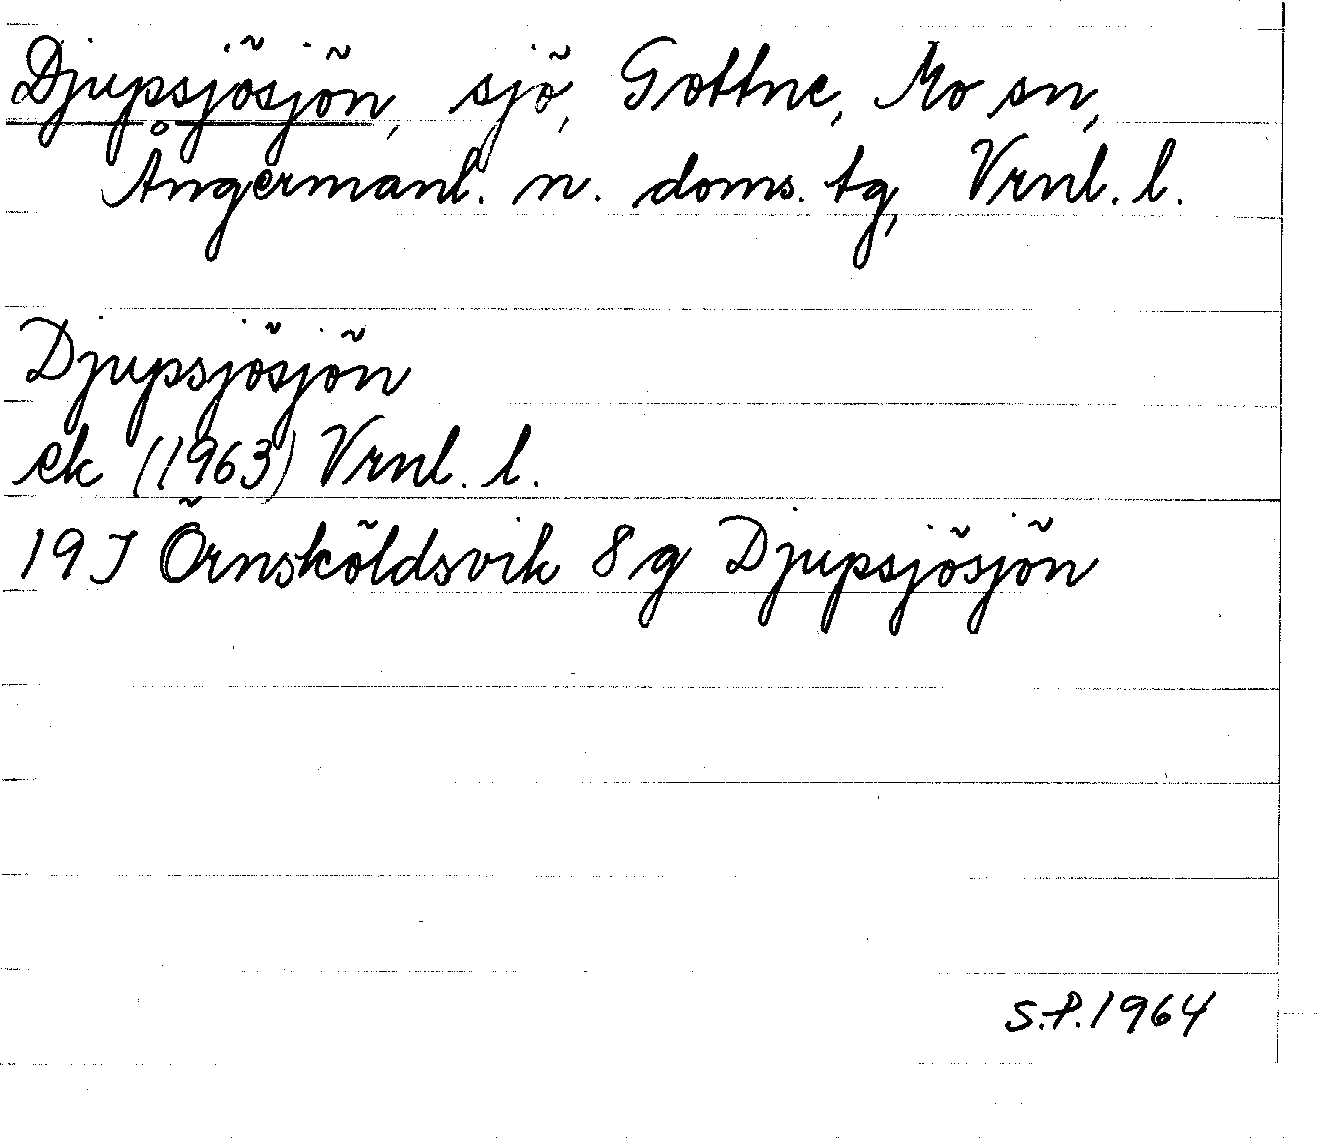 Djupsjösjön, sjö, Gottne, Mo sn,
Ångermanl. n. doms. tg, Vrnl. l.
Djupsjösjön
ek (1963) Vrnl. l.
19 J Örnsköldsvik 8 g Djupsjösjön
S.P. 1964